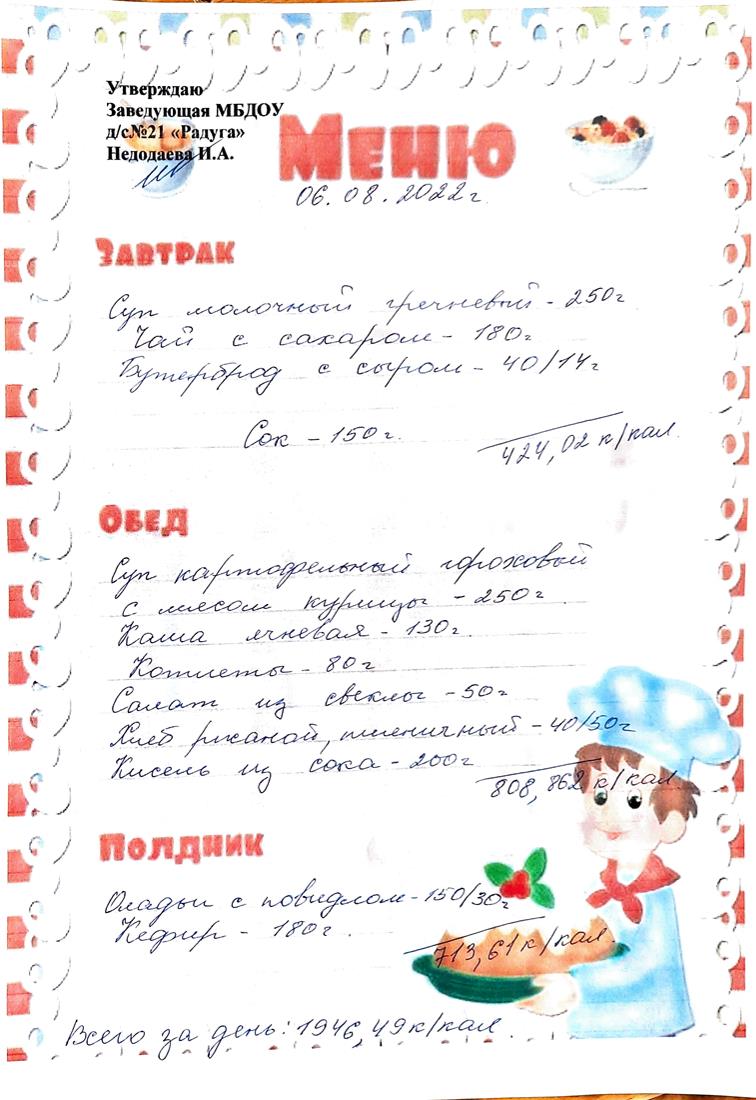 Утверждаю
Заведующая МБДОУ
д/с№21 «Радуга»
Недодаева И.А.
Меню
06.08.2022г
Завтрак
Суп молочный гречневый - 250г
Чай с сахаром - 180г
Бутерброд с сыром - 40/14г
Сок - 150г.
424,02 к/кал.
Обед
Суп картофельный гороховый
с мясом курицы - 250г
Каша ячневая - 130г.
Котлеты - 80г
Салат из свеклы - 50г
Хлеб ржаной, пшеничный - 40/50г
Кисель из сока - 200г
808,862 к/кал
Полдник
Оладьи с повидлом - 150/30г
Кефир - 180г.
713,61 к/кал.
Всего за день: 1946,49 к/кал